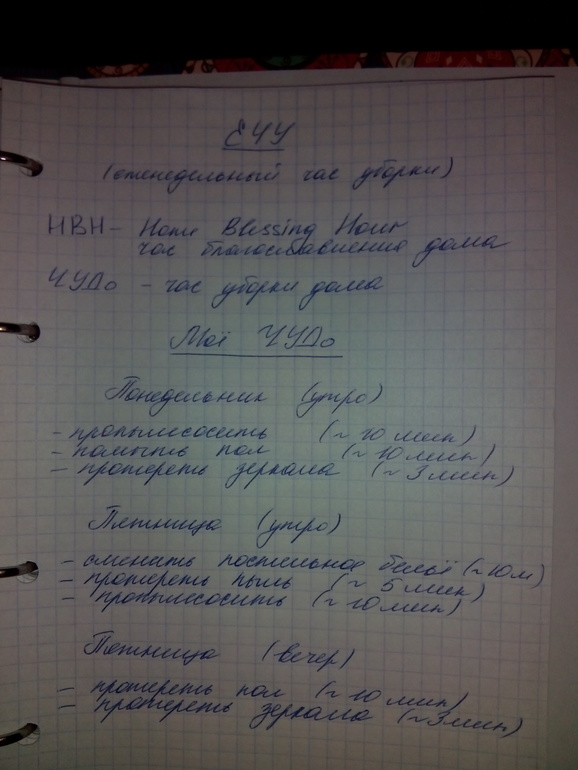 ЕЧУ
(еженедельный час уборки)
HBH - Home Blessing Hour
час благословения дома
ЧУДо - час уборки дома
Моё ЧУДо
Понедельник (утро)
- пропылесосить (~ 10 мин)
- помыть пол (~ 10 мин)
- протереть зеркала (~ 3 мин)
Пятница (утро)
- сменить постельное бельё (~ 10 м)
- протереть пыль (~ 5 мин)
- пропылесосить (~ 10 мин)
Пятница (вечер)
- протереть пол (~ 10 мин)
- протереть зеркала (~ 3 мин)